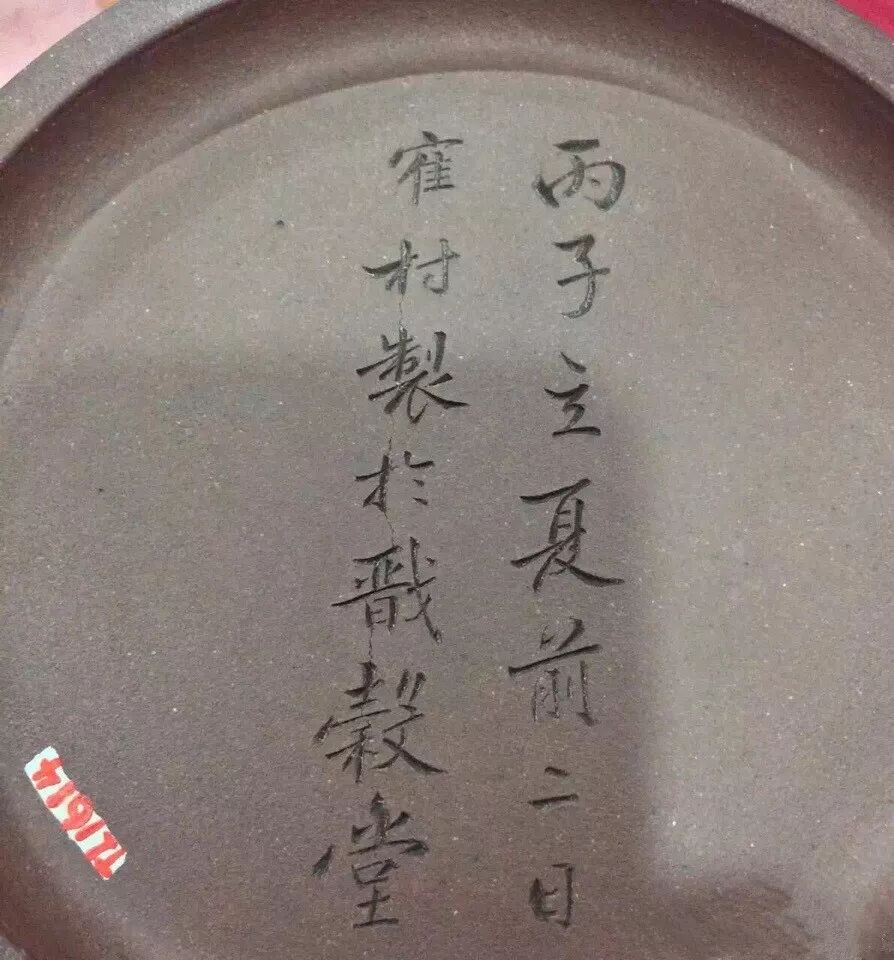 丙子立夏前二日
寉村製於戬榖堂
TL1614